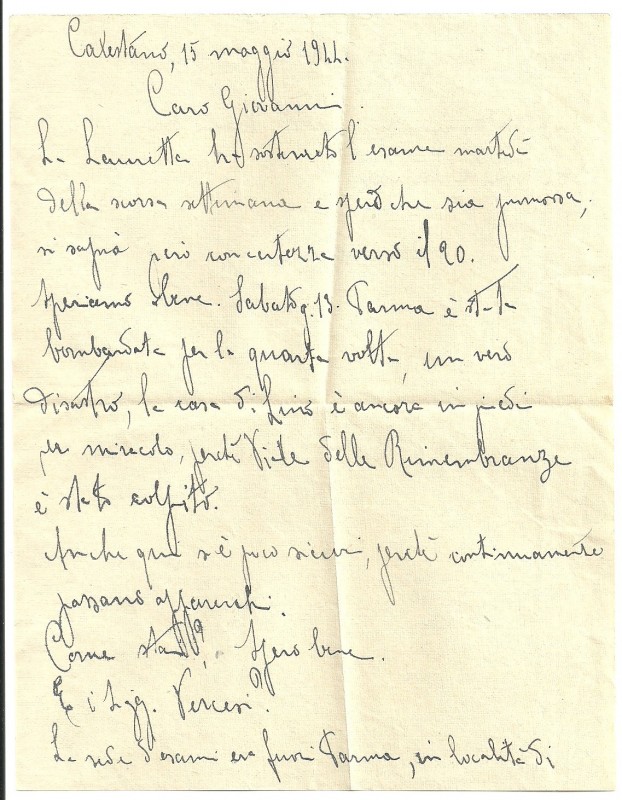 Calestano, 15 maggio 1944.
Caro Giovanni.
La Lauretta ha sostenuto l'esame martedì
della scorsa settimana e spero che sia promossa,
si saprà però con certezza verso il 20.
Speriamo bene. Sabato g. 13. Parma è stata
bombardata per la quarta volta, un vero
disastro, la casa di Lino è ancora in piedi
per miracolo, perchè Viale delle Rimembranze
è stato colpito.
Anche qui si è poco sicuri, perchè continuamente
passano apparecchi.
Come stai? Spero bene.
E i Sigg. Vercesi?
La sede d'esami era fuori Parma, in località di